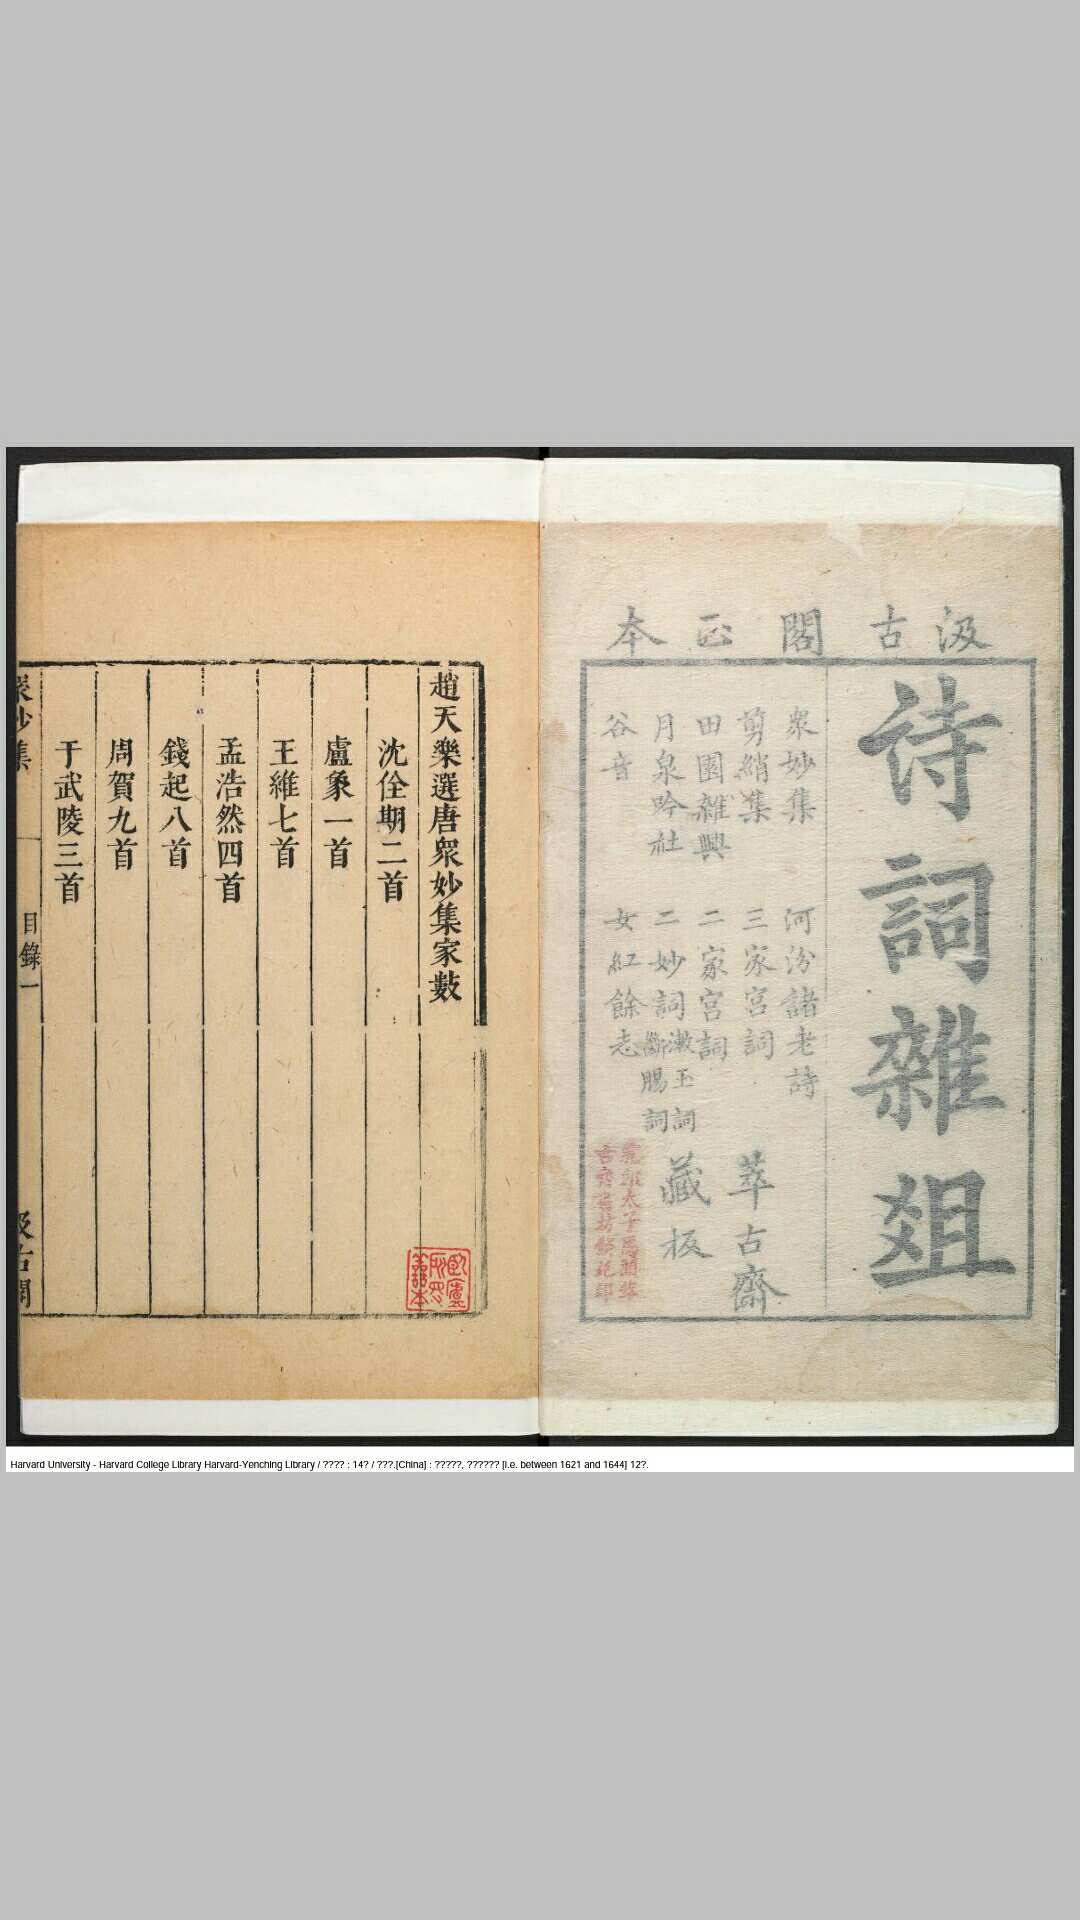 汲古閣正本
诗詞雜爼
衆妙集
剪綃集
田園雜興
月泉吟社
谷音
河汾諸老詩
三家宮詞
二家宮詞
二妙詞
漱玉詞
斷腸詞
女紅餘志
萃古齋
藏板
趙天樂選唐衆妙集家數
沈佺期二首
盧象一首
王維七首
孟浩然四首
錢起八首
周賀九首
于武陵三首
衆妙集
目錄一
汲古閣
Harvard University - Harvard College Library Harvard-Yenching Library / ???? : 14? / ???.[China] : ?????, ?????? [i.e. between 1621 and 1644] 12?.